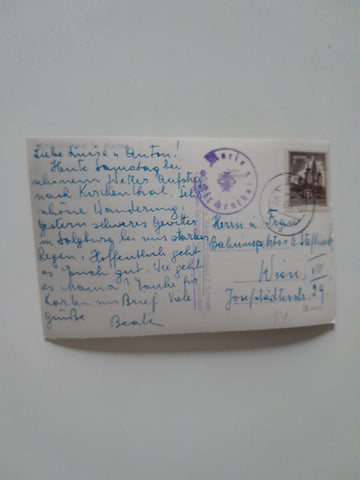 Liebe Luise u. Anton!
Heute Samstag bei
schönem Wetter Aufstieg
nach Kirchental. Sehr
schöne Wanderung.
Gestern schweres Gewitter
in Salzburg bei uns starker
Regen. Hoffentlich geht
es Euch gut. Wie geht
es Mama? Danke für
Karten im Brief. Viele
Grüße
Beate
Maria
Kirchenthal
Herrn u. Frau
Bahninspektor
Wien, VIII
Josefstädterstr. 29.